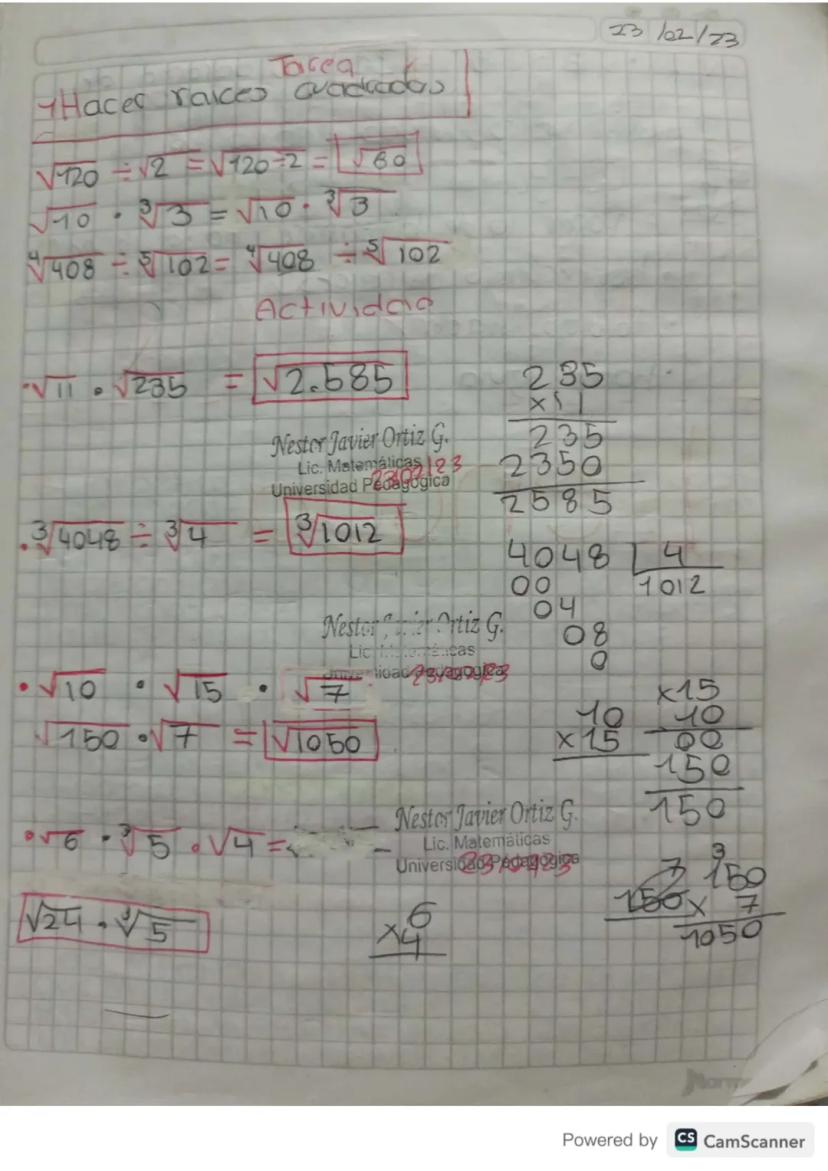 23/02/23
Tarea
Hacer raices cuadradas
√120 ÷ √2 = √120÷2 = √60
√10 · ³√3 = √10 · ³√3
⁴√408 ÷ ⁵√102 = ⁴√408 ÷ ⁵√102
Actividad
· √11 · √235 = √2.585
235
x11
235
2350
2585
Nestor Javier Ortiz G.
Lic. Matemáticas
23/02/23
Universidad Pedagógica
· ³√4048 ÷ ³√4 = ³√1012
4048 4
00 1012
04
08
0
Nestor Ortiz G.
Lic.
23/02/23
· √10 · √15 · √7
√150 · √7 = √1050
10
x15
x15
10
00
150
150
Nestor Javier Ortiz G.
Lic. Matemáticas
Universidad Pedagógica
· √6 · ³√5 · √4 =
√24 · ³√5
6
x4
3
150
x 7
1050
Powered by CS CamScanner